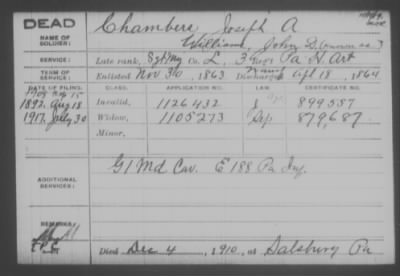 DEAD
NAME OF SOLDIER:
Chambers Joseph A
William, John D.
SERVICE:
Late rank, Sgt Maj Co. L, 3 Reg't Pa H. Art
TERM OF SERVICE:
Enlisted Nov 30, 1863 Discharged Apl 18, 1864
DATE OF FILING. CLASS. APPLICATION NO. LAW. CERTIFICATE NO.
1892, Aug 18 Invalid, 1126432 899557
1917, July 30 Widow, 1105273 Sep 879,687.
Minor,
ADDITIONAL SERVICES:
G 1 Md Cav. E 188 Pa Inf.
REMARKS:
Died Dec 4, 1910, at Salsburg Pa